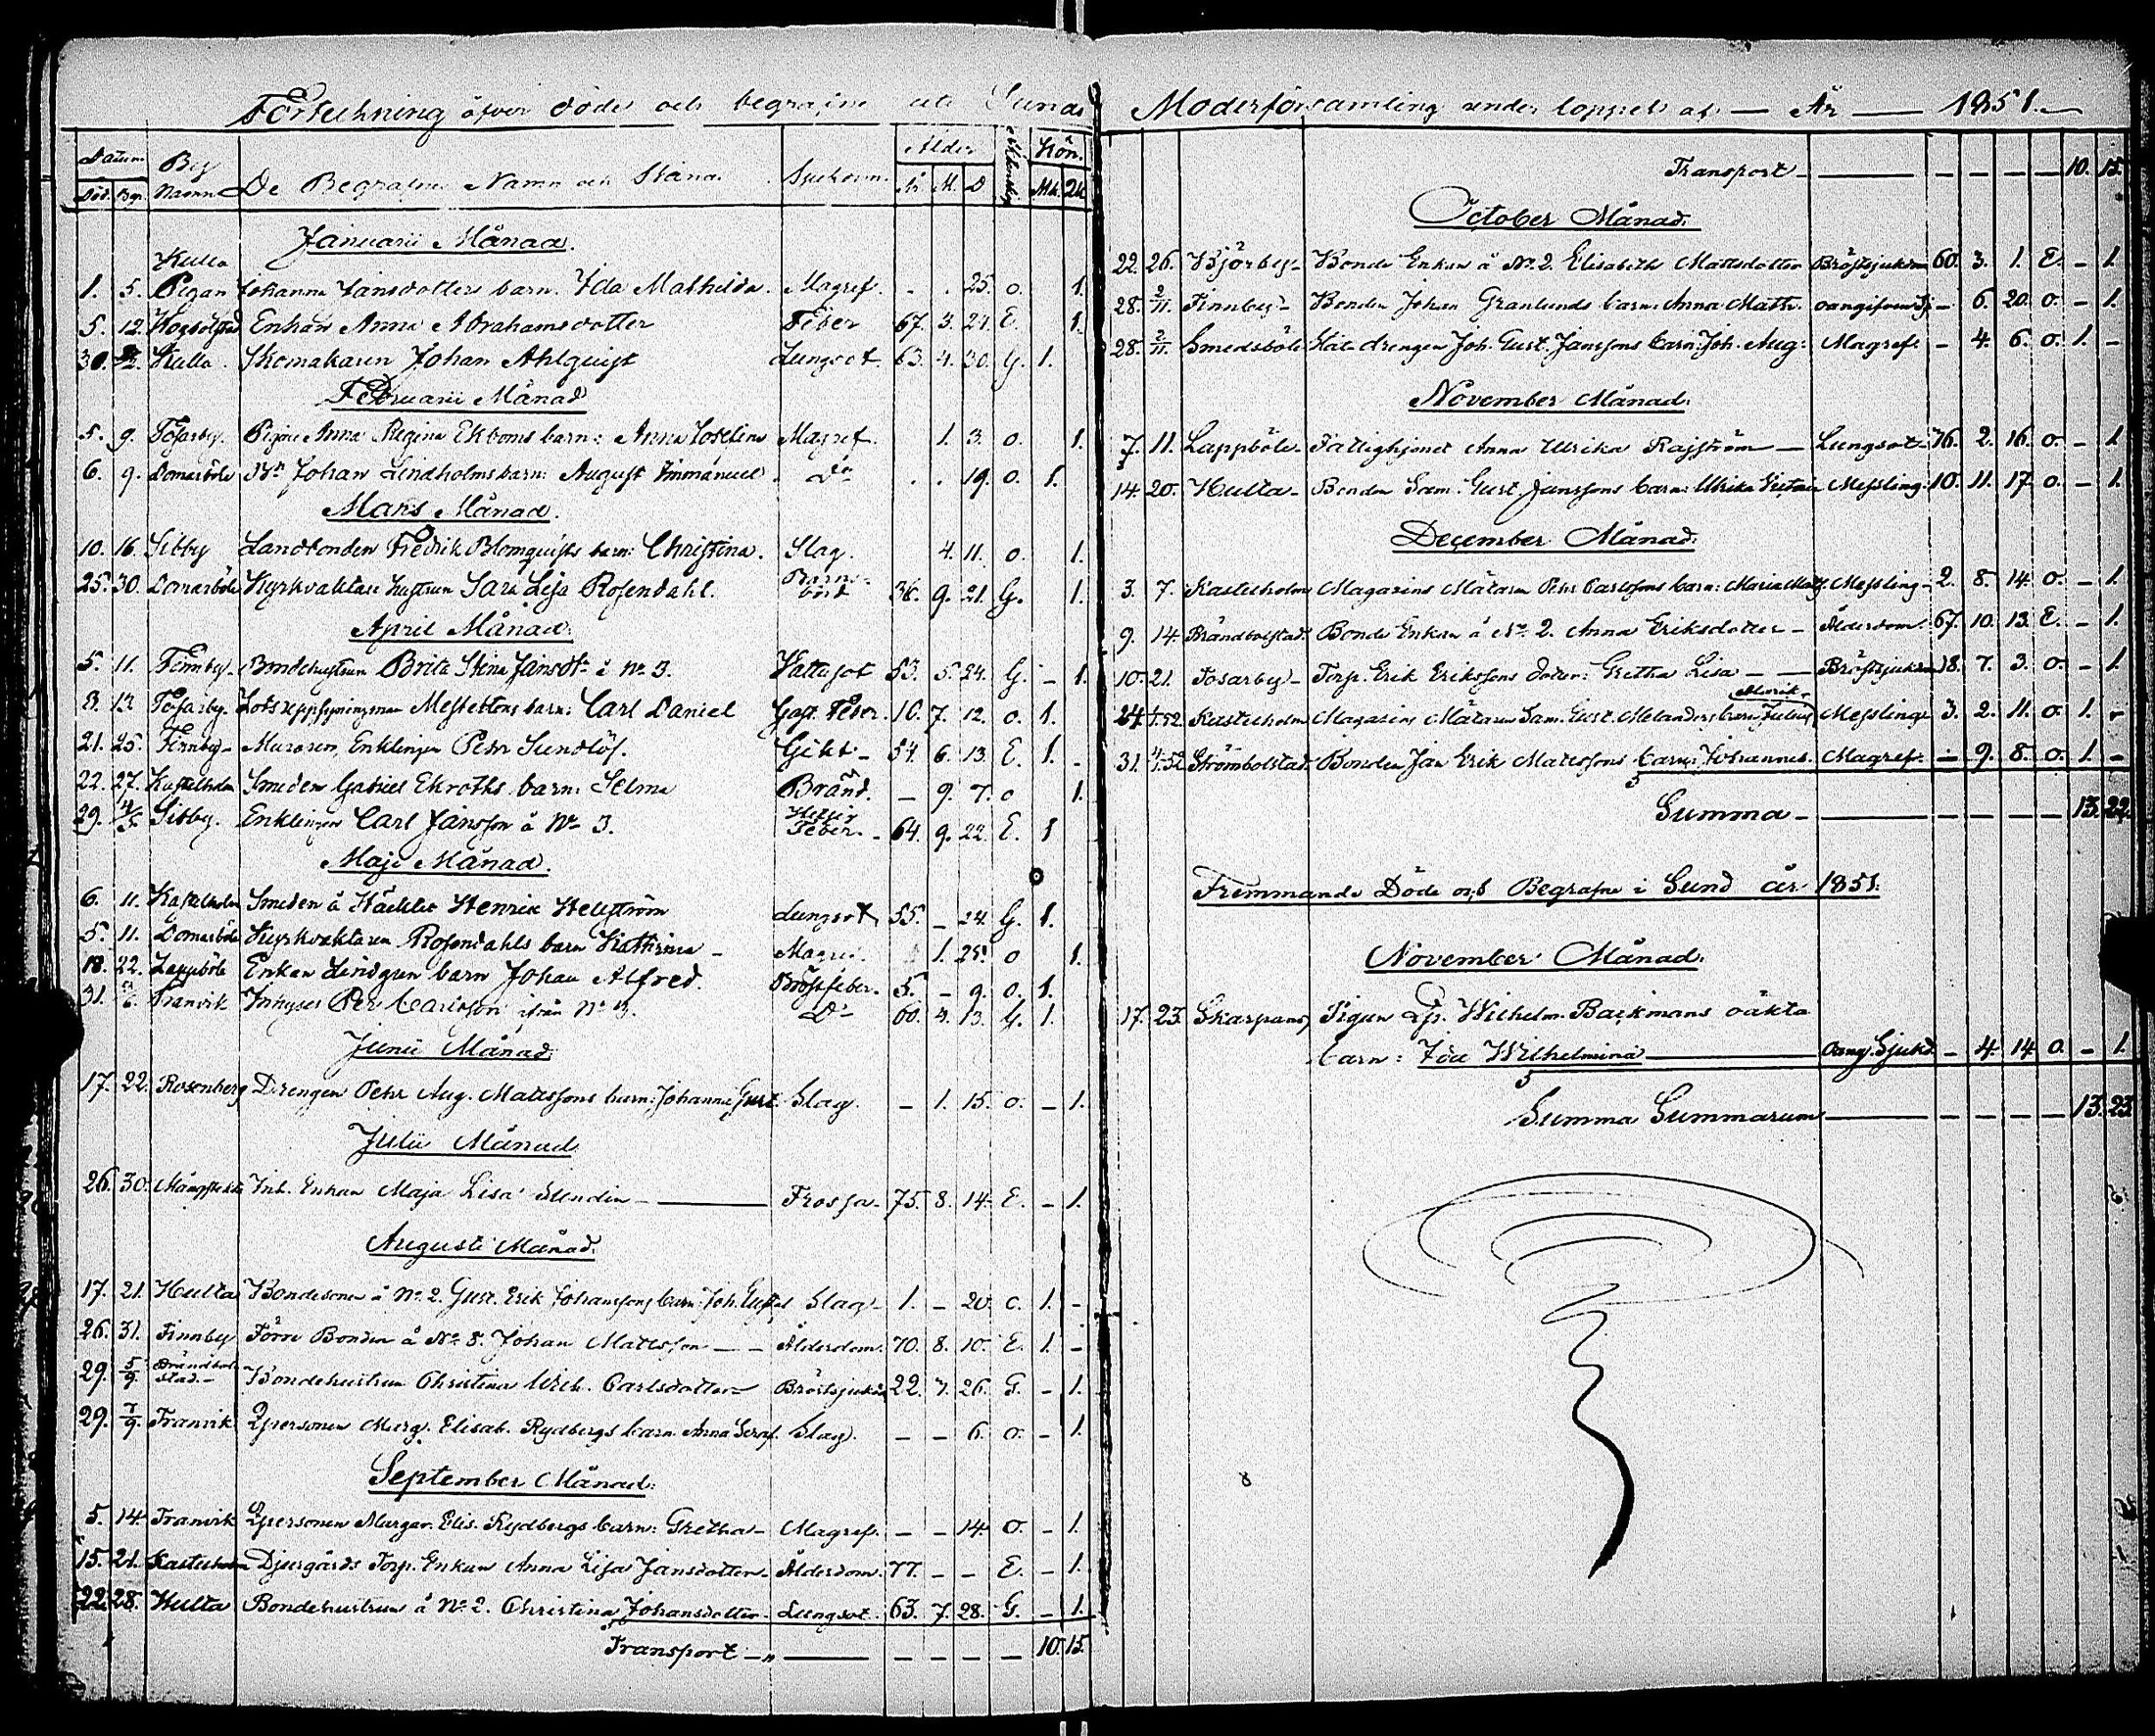 Förteckning öfver döde och begrafne uti Sunds Moderförsamling under loppet af — År — 1851.
Datum By Ålder Kön.
Död. Begr. Namn De Begrafnes Namn och Stånd Sjukdom År M. D Mk. Qk
Januarii Månad.
Kulla
1. 5. Pigan Johanna Jansdotters barn. Ida Mathilda. Magref. . . 25. o. 1.
5. 12. Enkan Anna Abrahamsdotter Feber 67. 3. 21. E. 1.
30. 2/2. Kulla. Skomakaren Johan Ahlquist Lungsot. 63. 4. 30. G. 1.
Februarii Månad
5. 9. Tosarby. Pigan Anna Regina Ekboms barn: Anna Josefina Magref. 1. 3. o. 1.
6. 9. Domarböle Johan Lindholms barn: August Emmanuel. Do . . 19. o. 1.
Mars Månad.
10. 16. Sibby Landbonden Fredrik Blomquists barn: Christina. Slag. 4. 11. o. 1.
25. 30. Domarböle Kyrkvaktare hustrun Sara Lisa Rosendahl. Barns-börd 36. 9. 21. G. 1.
April Månad.
5. 11. Finnby. Bondehustrun Brita Stina Jansdr å No 3. Vattusot 53. 5. 24. G. – 1.
8. 13 Tosarby. Lotsuppsyningsman Mestertons barn: Carl Daniel Gast. Feber. 10. 7. 12. o. 1.
21. 25. Finnby – Muraren, Enklingen Petr Sundlöf. Gikt – 54. 6. 13. E. 1. –
22. 27. Kastelholm Smeden Gabriel Ekroths barn: Selma Brånd. – 9. 7. o 1.
29. 4/5. Sibby. Enklingen Carl Jansson å No 3. Hettig Feber. – 64. 9. 22. E. 1
Maji Månad.
6. 11. Kastelholm Smeden å Häcklet Henrik Hellström Lungsot 55. – 24. G. 1.
5. 11. Domarböle Kyrkvaktaren Rosendahls barn Kathrina – Magref. 1. 25. o 1.
18. 22. Lappböle Enkan Lindgren barn Johan Alfred. Bröstfeber. 5. – 9. o. 1.
31. Tranvik Inhyses Per Carlsson ifrån No 3. Do 60. 4. 13. G. 1.
Junii Månad
17. 22. Rosenberg Drengen Pehr Aug. Matssons barn: Johanna Gust. Slag. – 1. 15. o. – 1.
Julii Månad
26. 30. Mångstekta Inh. Enkan Maja Lisa Sundin — Frossa. 75. 8. 14. E. – 1.
Augusti Månad.
17. 21. Hulta Bondesonen å No 2. Gust. Erik Johanssons barn: Joh. Gustaf Slag – 1. – 20. o. 1. –
26. 31. Finnby Förre Bonden å No 8. Johan Matsson — Ålderdom. 70. 8. 10. E. 1. –
29. 5/9. Brändbolstad. – Bondehustrun Christina Wilh. Carlsdotter – Bröstsjukdom 22. 7. 26. G. – 1.
29. 7/9. Tranvik Qpersonen Marg. Elisab. Rydbergs barn. Anna Seraf. Slag. – – 6. o. – 1.
September Månad.
5. 14. Tranvik Qpersonen Margar. Elis. Rydbergs barn: Gretha – Magref. – – 14. o. – 1.
15. 21. Kastelholm Djurgårds Torp. Enkan Anna Lisa Jansdotter. Ålderdom. 77. – – E. – 1.
22. 28. Hulta Bondehustrun å No 2. Christina Johansdotter. Lungsot. 63. 7. 28. G. – 1.
Transport – „ — – – – – 10. 15.
Transport – — – – – – 10. 15.
October Månad.
22. 26. Björby – Bonde Enkan å No 2. Elisabeth Mattsdotter Bröstsjukdom 60. 3. 1. E. – 1.
28. 2/11. Finnby – Bonden Johan Granlunds barn: Anna Math. oangifven Sj. – 6. 20. o. – 1.
28. 2/11. Smedsböle drengen Joh. Gust. Janssons barn: Joh. Aug: Magref. – 4. 6. o. 1. –
November Månad.
7. 11. Lappböle – Fattighjonet Anna Ulrika Rasström — Lungsot – 76. 2. 16. o. – 1
14. 20. Hulta – Bonden Sam. Gust. Janssons barn: Ulrika Messling. 10. 11. 17. o. – 1.
December Månad.
3. 7. Kastelholm Magasins Mätaren Pehr Carlssons barn: Maria Math. Messling – 2. 8. 14. o. – 1.
9. 14. Brändbolstad. Bonde Enkan å No 2. Anna Eriksdotter – Ålderdom. 67. 10. 13. E. – 1.
10. 21. Tosarby – Torp. Erik Erikssons dotter: Gretha Lisa — Bröstsjukdom 18. 7. 3. o. – 1.
24. 1/1.52. Kastelholm Magasins Mätaren Sam. Gust. Melanders barn Julius Messling – 3. 2. 11. o. 1. –
31. 4/1.52. Strömbolstad. Bonden Jan Erik Matssons barn: Johannes. Magref. – 9. 8. o. 1. –
Summa – — – – – – 13. 22.
Fremmande Döde och Begrafne i Sund år 1851.
November Månad.
17. 23. Skarpans, Pigan Qp. Wilhelm. Backmans oäkta
barn: Ida Wilhelmina — Oang. Sjukd. – 4. 14. o. – 1.
Summa Summarum — – – – – 13. 23.